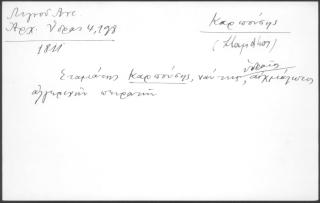 Λιγνοῦ Ἀντ.
Ἀρχ. Ὕδρας 4, 198
1811
Καρπούσης
(Σταμάτης)
Σταμάτης Καρπούσης, ναύτης, ὑδραῖος, αἰχμάλωτος
ἀλγερινῶν πειρατῶν